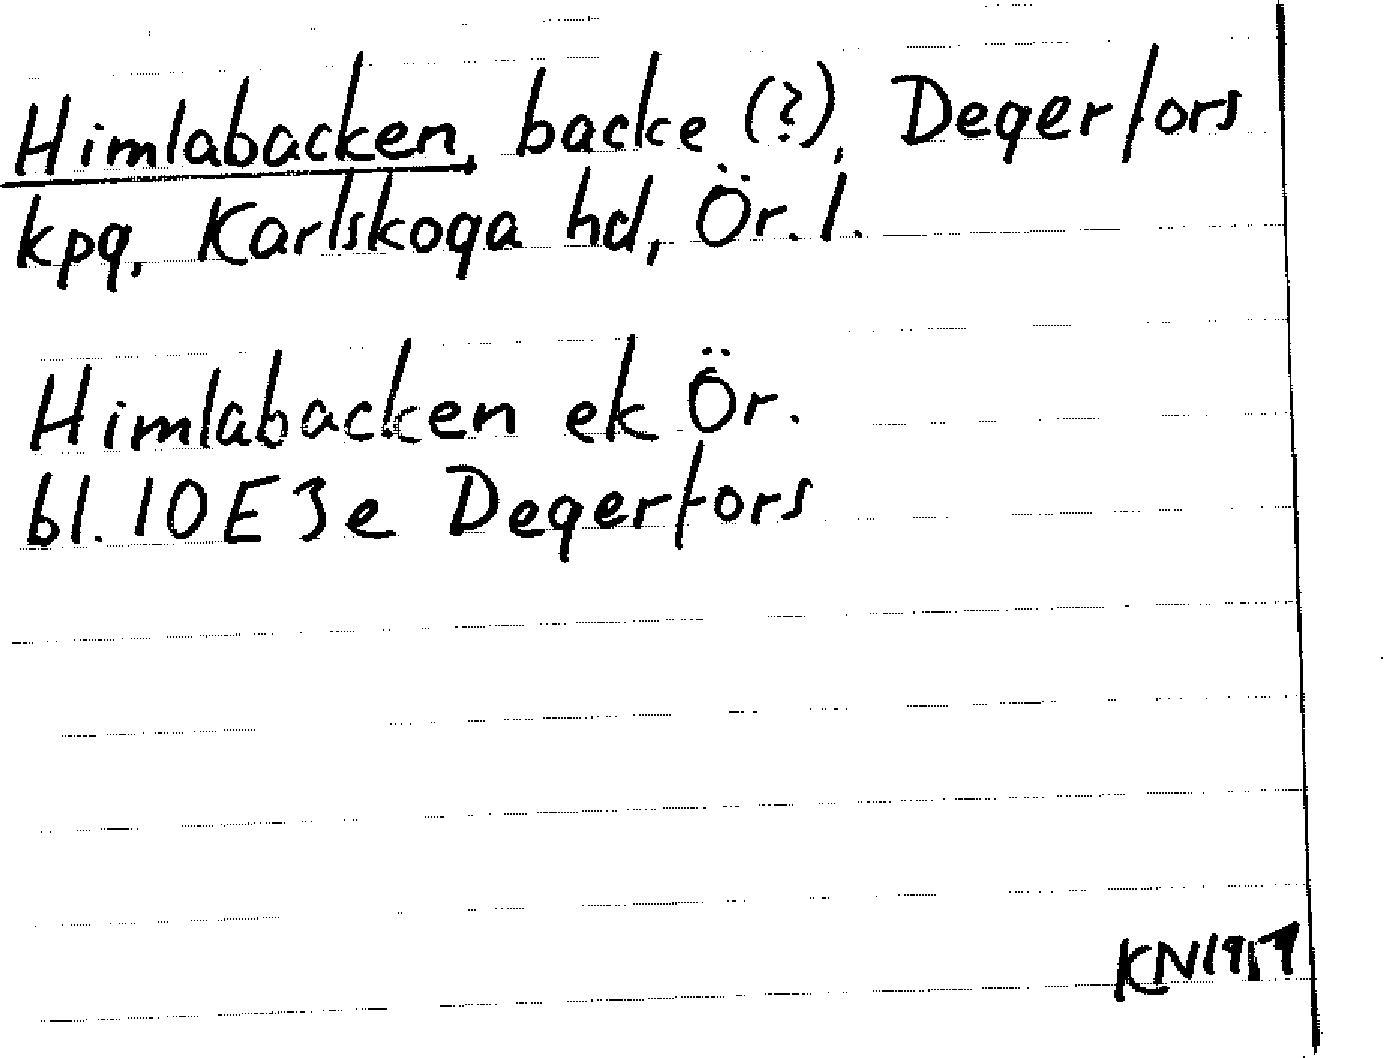 Himlabacken, backe (?), Degerfors
kpg, Karlskoga hd, Ör. l.
Himlabacken ek Ör.
bl. 10E3e Degerfors